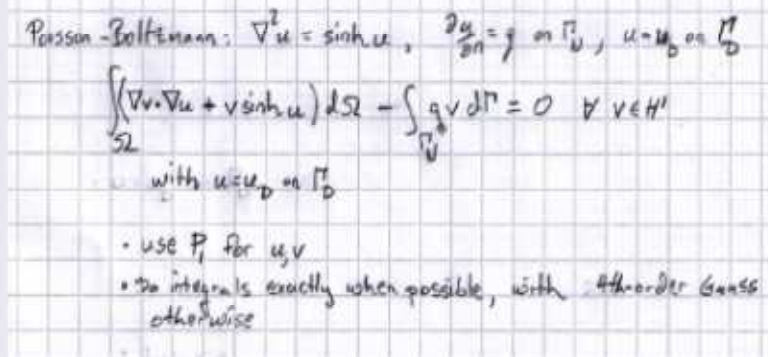 Poisson-Boltzmann: ∇²u = sinh u, ∂u/∂n = g on Γ_N, u = u_D on Γ_D
∫_Ω (∇v·∇u + v sinh u) dΩ - ∫_Γ_N g v dΓ = 0 ∀ v ∈ H¹
with u = u_D on Γ_D
• use P₁ for u, v
• Do integrals exactly when possible, with 4th-order Gauss
otherwise